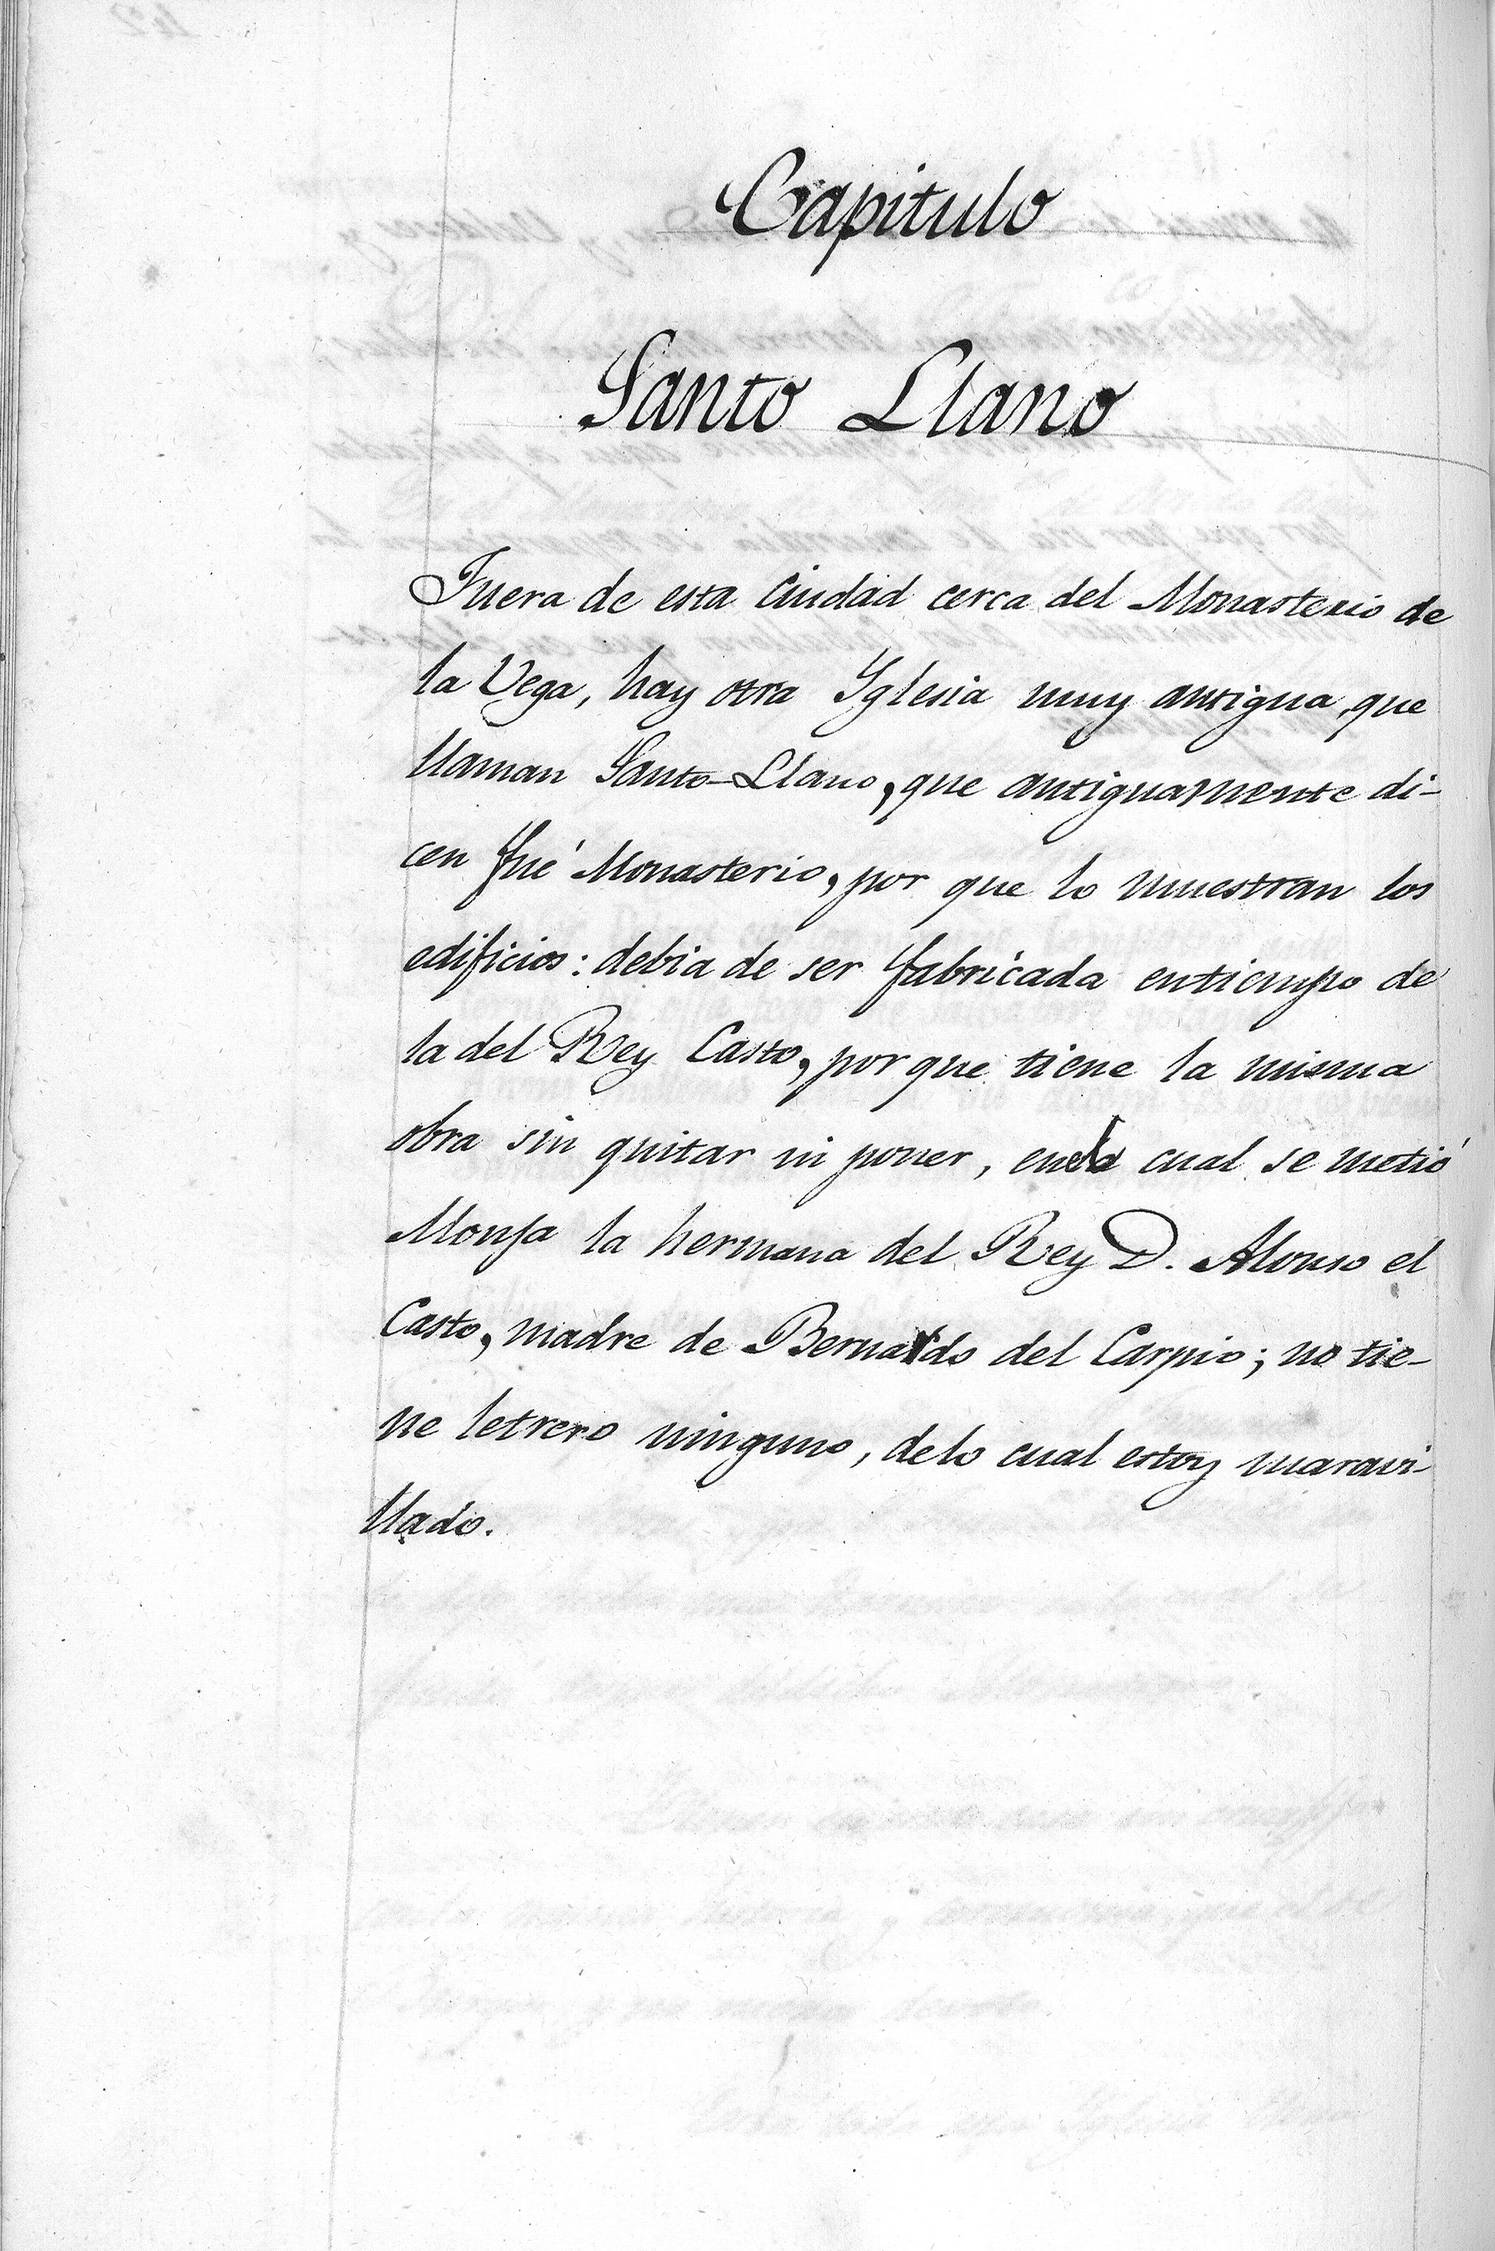 Capitulo
Santo Llano
Fuera de esta Ciudad cerca del Monasterio de
la Vega, hay otra Yglesia muy antigua, que
llaman Santo-Llano, que antiguamente di-
cen fué Monasterio, por que lo muestran los
edificios: debia de ser fabricada entiempo de
la del Rey Casto, porque tiene la misma
obra sin quitar ni poner, enla cual se metió
Monja la hermana del Rey D. Alonso el
Casto, madre de Bernaldo del Carpio; no tie-
ne letrero ninguno, delo cual estoy maravi-
llado.